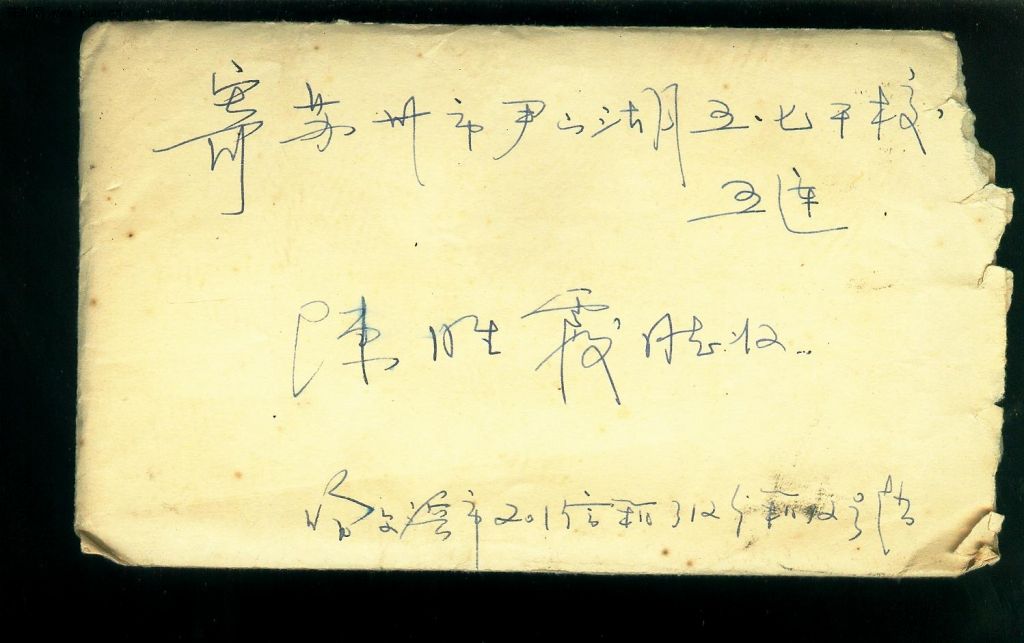 寄苏州市尹山湖五·七干校
五连
陈胜霞同志收
哈尔滨市201信箱312分箱